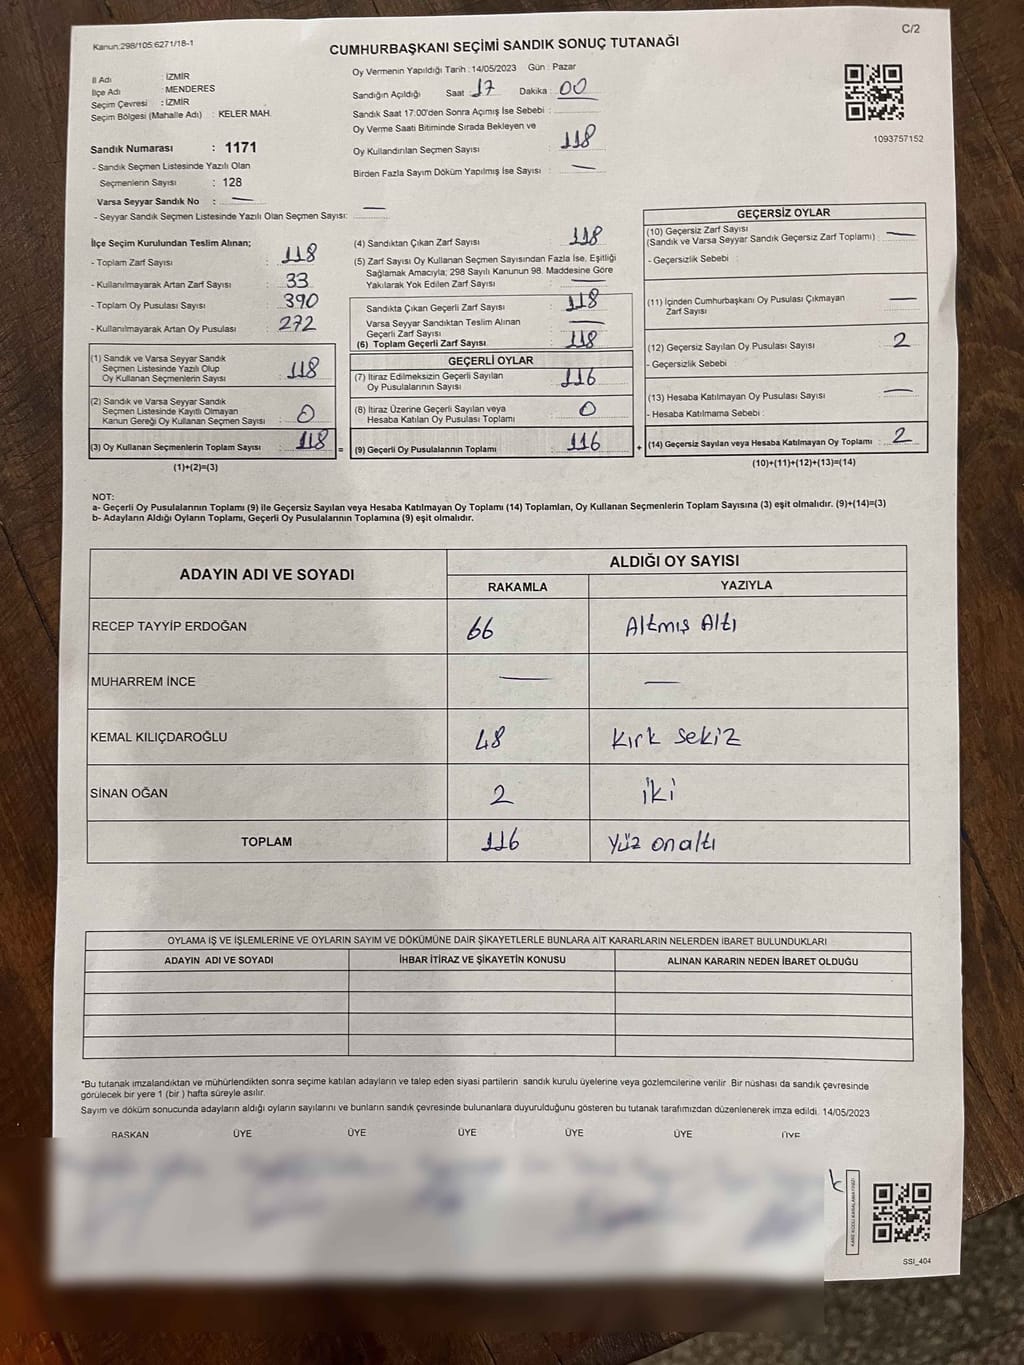 C/2
Kanun:298/105 6271/18-1
CUMHURBAŞKANI SEÇİMİ SANDIK SONUÇ TUTANAĞI
İl Adı : İZMİR
İlçe Adı : MENDERES
Seçim Çevresi : İZMİR
Seçim Bölgesi (Mahalle Adı) : KELER MAH.
Sandık Numarası : 1171
- Sandık Seçmen Listesinde Yazılı Olan
Seçmenlerin Sayısı : 128
Varsa Seyyar Sandık No : —
- Seyyar Sandık Seçmen Listesinde Yazılı Olan Seçmen Sayısı: —
Oy Vermenin Yapıldığı Tarih : 14/05/2023 Gün : Pazar
Sandığın Açıldığı Saat : 17 Dakika : 00
Sandık Saat 17:00'den Sonra Açımış İse Sebebi :
Oy Verme Saati Bitiminde Sırada Bekleyen ve
Oy Kullandırılan Seçmen Sayısı : 118
Birden Fazla Sayım Döküm Yapılmış İse Sayısı : —
1093757152
İlçe Seçim Kurulundan Teslim Alınan;
- Toplam Zarf Sayısı : 118
- Kullanılmayarak Artan Zarf Sayısı : 33
- Toplam Oy Pusulası Sayısı : 390
- Kullanılmayarak Artan Oy Pusulası : 272
(1) Sandık ve Varsa Seyyar Sandık
Seçmen Listesinde Yazılı Olup
Oy Kullanan Seçmenlerin Sayısı : 118
(2) Sandık ve Varsa Seyyar Sandık
Seçmen Listesinde Kayıtlı Olmayan
Kanun Gereği Oy Kullanan Seçmen Sayısı : 0
(3) Oy Kullanan Seçmenlerin Toplam Sayısı : 118 =
(1)+(2)=(3)
(4) Sandıktan Çıkan Zarf Sayısı : 118
(5) Zarf Sayısı Oy Kullanan Seçmen Sayısından Fazla İse, Eşitliği
Sağlamak Amacıyla; 298 Sayılı Kanunun 98. Maddesine Göre
Yakılarak Yok Edilen Zarf Sayısı : —
Sandıkta Çıkan Geçerli Zarf Sayısı : 118
Varsa Seyyar Sandıktan Teslim Alınan
Geçerli Zarf Sayısı : —
(6) Toplam Geçerli Zarf Sayısı : 118
GEÇERLİ OYLAR
(7) İtiraz Edilmeksizin Geçerli Sayılan
Oy Pusulalarının Sayısı : 116
(8) İtiraz Üzerine Geçerli Sayılan veya
Hesaba Katılan Oy Pusulası Toplamı : 0
(9) Geçerli Oy Pusulalarının Toplamı : 116 +
GEÇERSİZ OYLAR
(10) Geçersiz Zarf Sayısı
(Sandık ve Varsa Seyyar Sandık Geçersiz Zarf Toplamı) : —
- Geçersizlik Sebebi :
(11) İçinden Cumhurbaşkanı Oy Pusulası Çıkmayan
Zarf Sayısı : —
(12) Geçersiz Sayılan Oy Pusulası Sayısı : 2
- Geçersizlik Sebebi
(13) Hesaba Katılmayan Oy Pusulası Sayısı : —
- Hesaba Katılmama Sebebi :
(14) Geçersiz Sayılan veya Hesaba Katılmayan Oy Toplamı : 2
(10)+(11)+(12)+(13)=(14)
NOT:
a- Geçerli Oy Pusulalarının Toplamı (9) ile Geçersiz Sayılan veya Hesaba Katılmayan Oy Toplamı (14) Toplamları, Oy Kullanan Seçmenlerin Toplam Sayısına (3) eşit olmalıdır. (9)+(14)=(3)
b- Adayların Aldığı Oyların Toplamı, Geçerli Oy Pusulalarının Toplamına (9) eşit olmalıdır.
ADAYIN ADI VE SOYADI
ALDIĞI OY SAYISI
RAKAMLA YAZIYLA
RECEP TAYYİP ERDOĞAN 66 Altmış Altı
MUHARREM İNCE — —
KEMAL KILIÇDAROĞLU 48 Kırk sekiz
SİNAN OĞAN 2 iki
TOPLAM 116 Yüz onaltı
OYLAMA İŞ VE İŞLEMLERİNE VE OYLARIN SAYIM VE DÖKÜMÜNE DAİR ŞİKAYETLERLE BUNLARA AİT KARARLARIN NELERDEN İBARET BULUNDUKLARI
ADAYIN ADI VE SOYADI İHBAR İTİRAZ VE ŞİKAYETİN KONUSU ALINAN KARARIN NEDEN İBARET OLDUĞU
*Bu tutanak imzalandıktan ve mühürlendikten sonra seçime katılan adayların ve talep eden siyasi partilerin sandık kurulu üyelerine veya gözlemcilerine verilir .Bir nüshası da sandık çevresinde
görülecek bir yere 1 (bir ) hafta süreyle asılır.
Sayım ve döküm sonucunda adayların aldığı oyların sayılarını ve bunların sandık çevresinde bulunanlara duyurulduğunu gösteren bu tutanak tarafımızdan düzenlenerek imza edildi. 14/05/2023
BAŞKAN ÜYE ÜYE ÜYE ÜYE ÜYE ÜYE
SSI_404